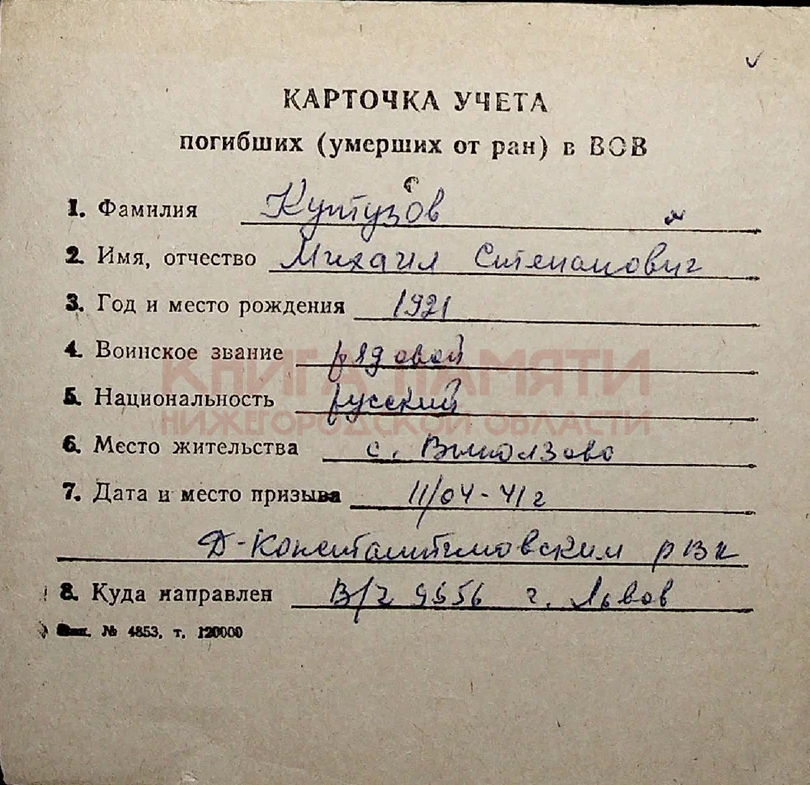 КАРТОЧКА УЧЕТА
погибших (умерших от ран) в ВОВ
1. Фамилия Кутузов
2. Имя, отчество Михаил Степанович
3. Год и место рождения 1921
4. Воинское звание рядовой
КНИГА ПАМЯТИ
5. Национальность русский
НИЖЕГОРОДСКОЙ ОБЛАСТИ
6. Место жительства с. Выползово
7. Дата и место призыва 11/04-41г
Д-Константиновским рвк
8. Куда направлен В/ч 9656 г. Львов
№ 4853, т. 120000